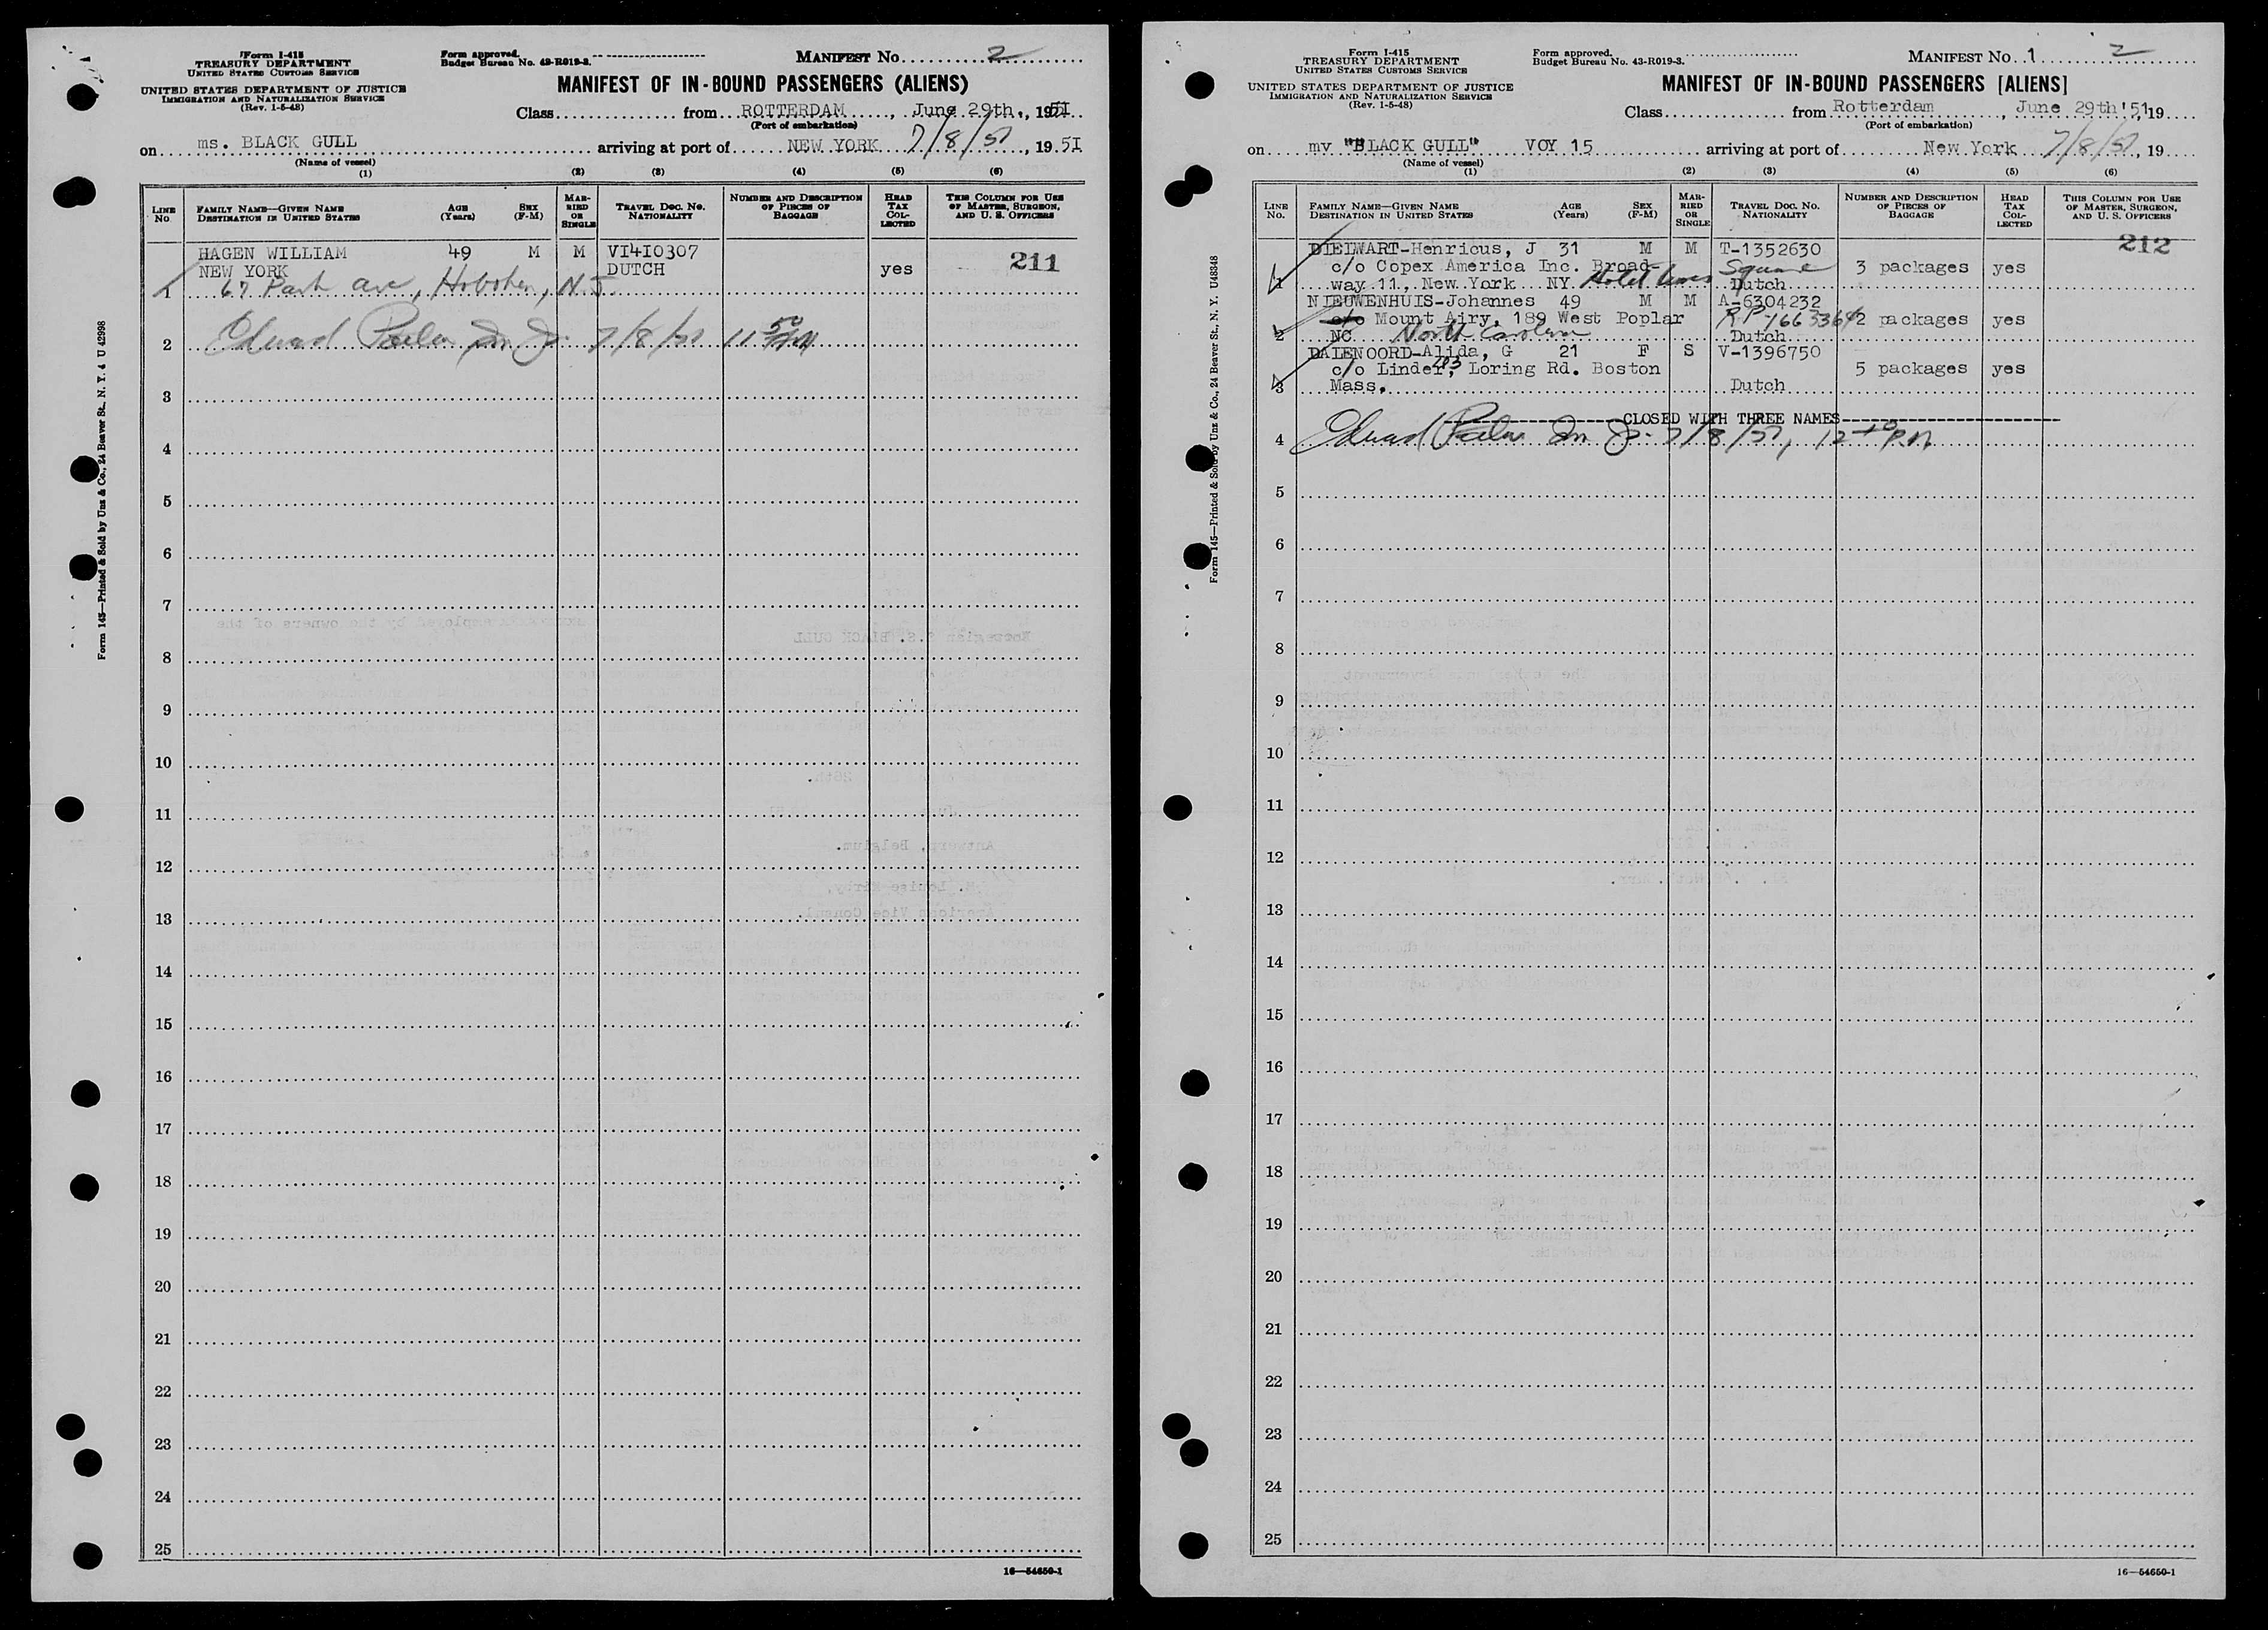 Form I-415
TREASURY DEPARTMENT
UNITED STATES CUSTOMS SERVICE
UNITED STATES DEPARTMENT OF JUSTICE
IMMIGRATION AND NATURALIZATION SERVICE
(Rev. 1-5-48)
Form approved.
Budget Bureau No. 43-R019-3.
MANIFEST No. 2
MANIFEST OF IN-BOUND PASSENGERS (ALIENS)
Class from ROTTERDAM, June 29th., 1951
(Port of embarkation)
on ms. BLACK GULL arriving at port of NEW YORK 7/8/51, 1951
(Name of vessel)
(1) (2) (3) (4) (5) (6)
LINE No. FAMILY NAME—GIVEN NAME DESTINATION IN UNITED STATES AGE (Years) SEX (F-M) MARRIED OR SINGLE TRAVEL DOC. NO. NATIONALITY NUMBER AND DESCRIPTION OF PIECES OF BAGGAGE HEAD TAX COLLECTED THIS COLUMN FOR USE OF MASTER, SURGEON, AND U. S. OFFICERS
HAGEN WILLIAM 49 M M VI4I0307 211
NEW YORK DUTCH yes
1 67 Park ave, Hoboken, N.J.
2 7/8/51 11 50 AM
3
4
5
6
7
8
9
10
11
12
13
14
15
16
17
18
19
20
21
22
23
24
25
16—54650-1
Form 145—Printed & Sold by Unz & Co., 24 Beaver St., N. Y. 4 U 42998
Form I-415
TREASURY DEPARTMENT
UNITED STATES CUSTOMS SERVICE
UNITED STATES DEPARTMENT OF JUSTICE
IMMIGRATION AND NATURALIZATION SERVICE
(Rev. 1-5-48)
Form approved.
Budget Bureau No. 43-R019-3.
MANIFEST No. 1 2
MANIFEST OF IN-BOUND PASSENGERS [ALIENS]
Class from Rotterdam, June 29th'51, 19
(Port of embarkation)
on mv "BLACK GULL" VOY 15 arriving at port of New York 7/8/51, 19
(Name of vessel)
(1) (2) (3) (4) (5) (6)
LINE No. FAMILY NAME—GIVEN NAME DESTINATION IN UNITED STATES AGE (Years) SEX (F-M) MARRIED OR SINGLE TRAVEL DOC. NO. NATIONALITY NUMBER AND DESCRIPTION OF PIECES OF BAGGAGE HEAD TAX COLLECTED THIS COLUMN FOR USE OF MASTER, SURGEON, AND U. S. OFFICERS
212
DIELWART-Henricus, J 31 M M T-1352630
c/o Copex America Inc. Broad- Square 3 packages yes
1 way 11, New York NY. Hotel Dutch
NIEUWENHUIS-Johannes 49 M M A-6304232
c/o Mount Airy, 189 West Poplar 2 packages yes
2 NC North Carolina Dutch
DALENOORD-Alida, G 21 F S V-1396750
c/o Linder, 203 Loring Rd. Boston 5 packages yes
3 Mass. Dutch
CLOSED WITH THREE NAMES
4 7/8/51, 12 10 P.M.
5
6
7
8
9
10
11
12
13
14
15
16
17
18
19
20
21
22
23
24
25
16—54650-1
Form 145—Printed & Sold by Unz & Co., 24 Beaver St., N. Y. U48348